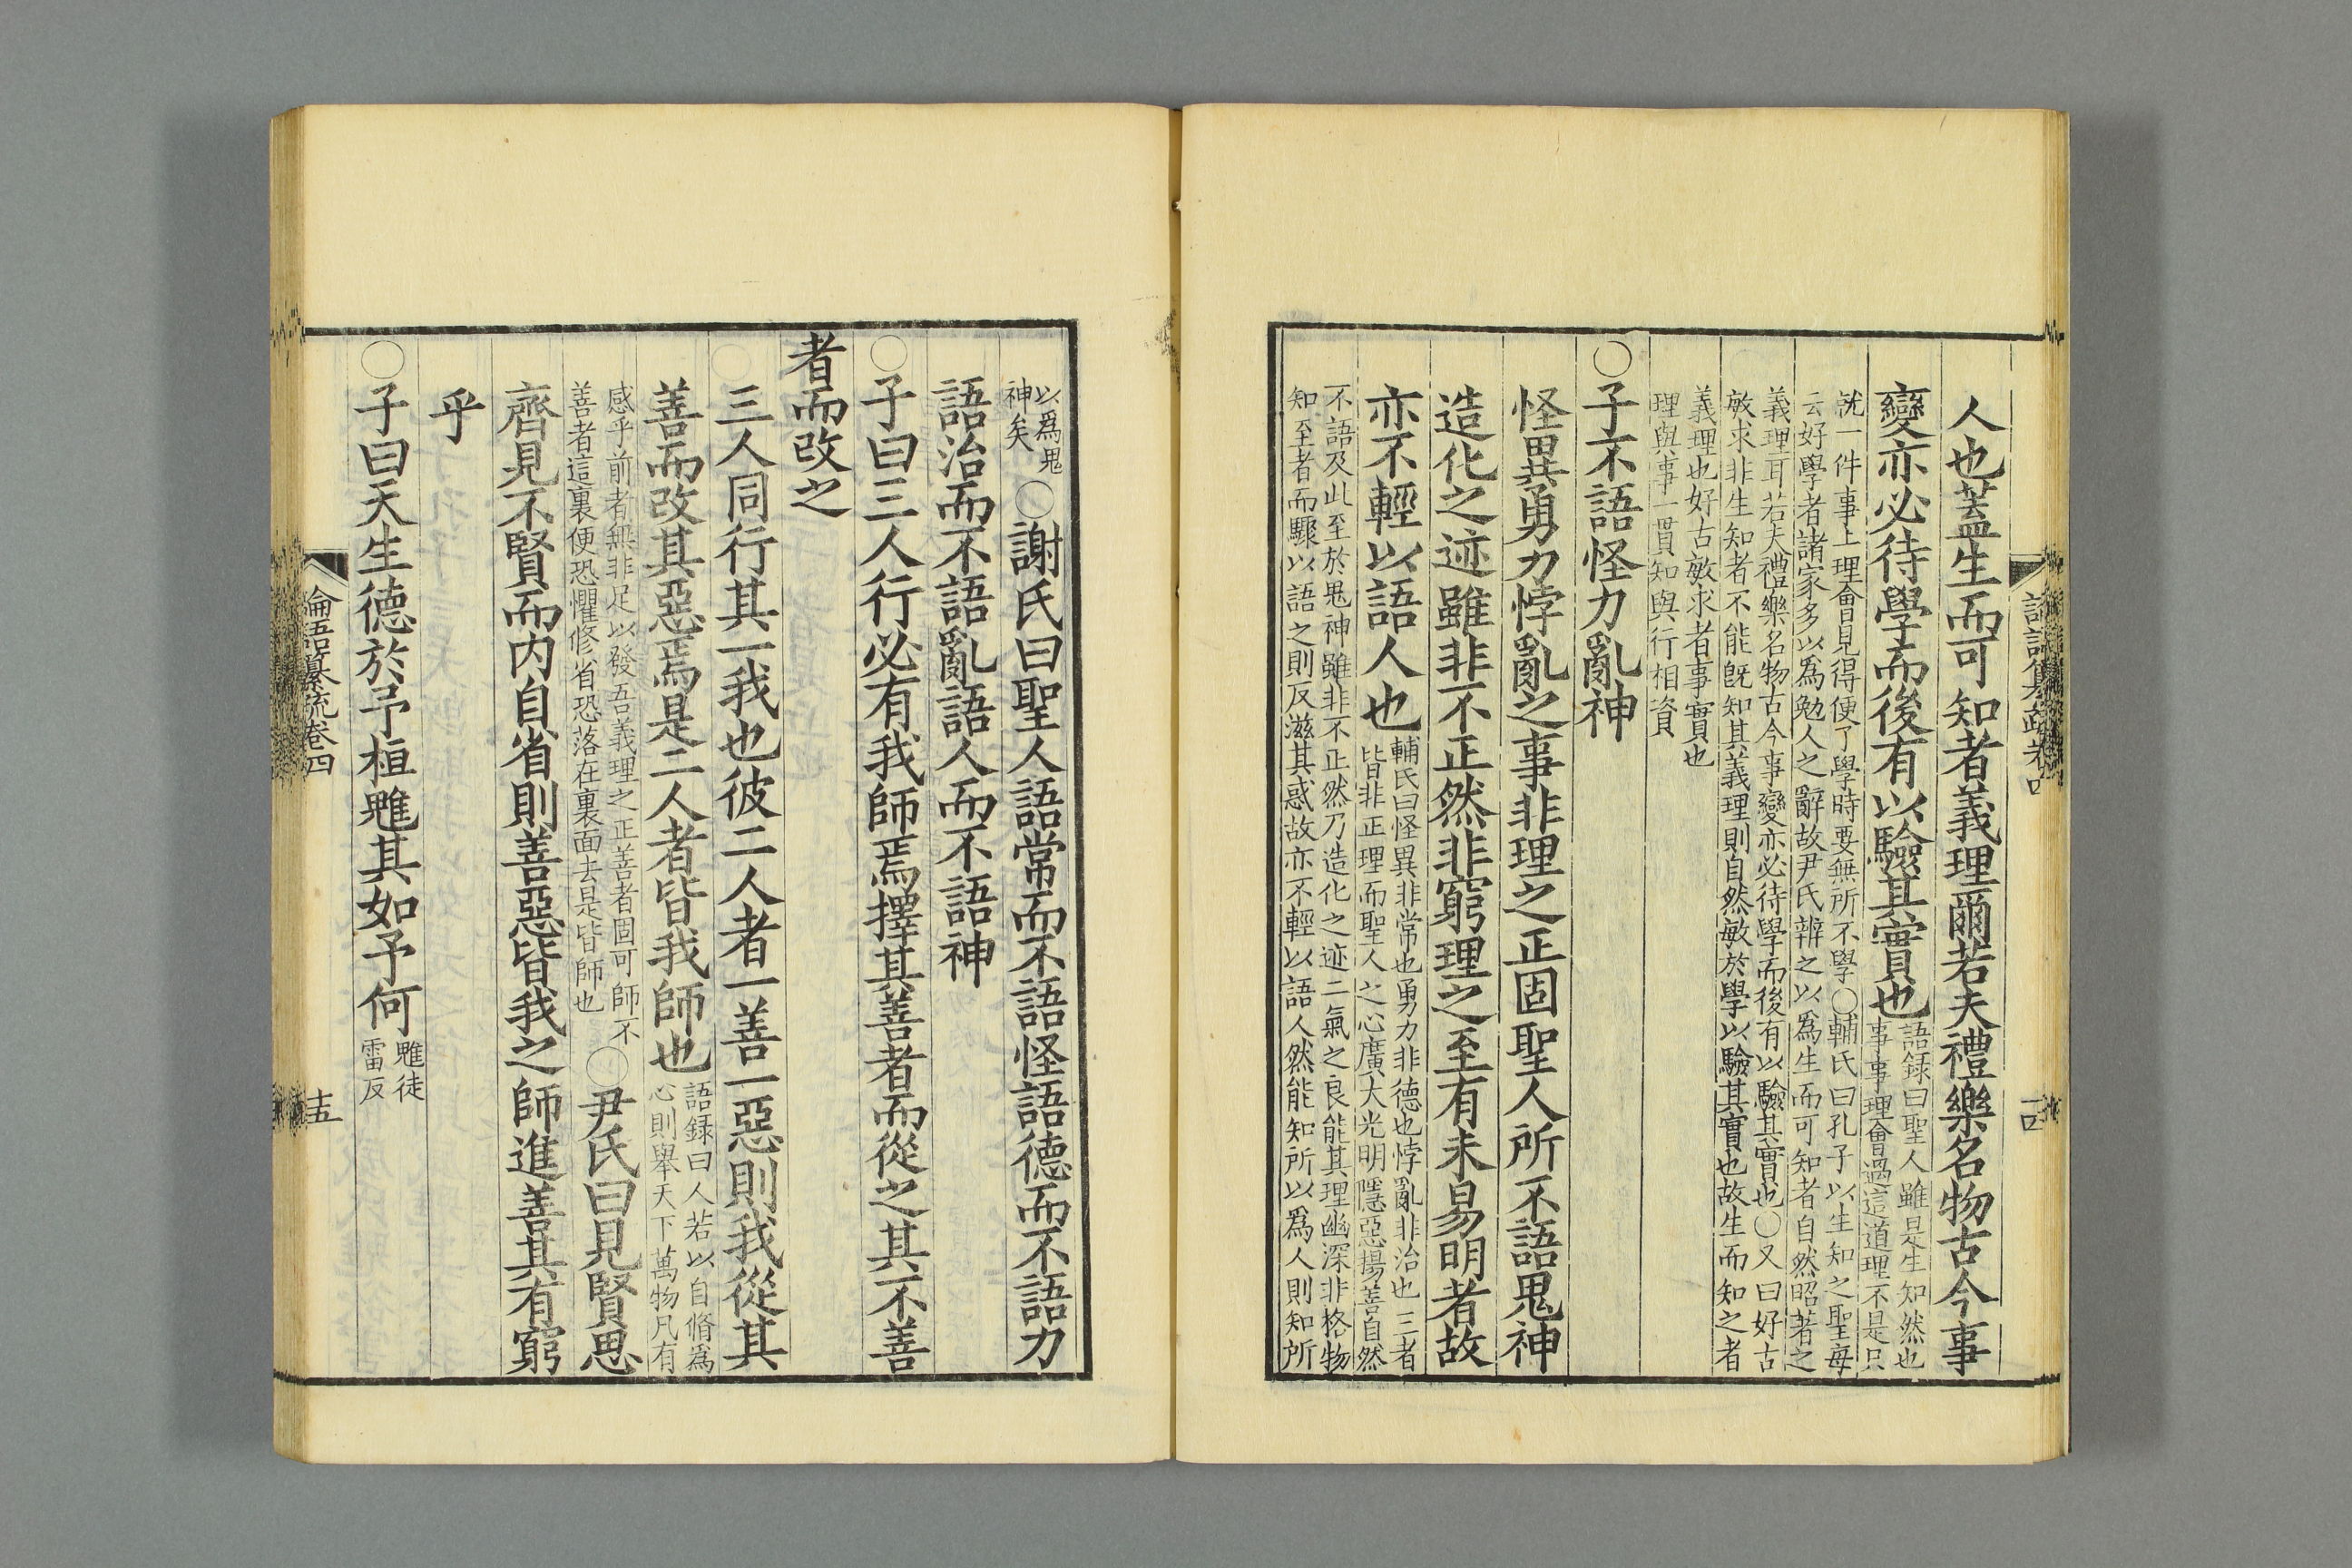 人也蓋生而可知者義理爾若夫禮樂名物古今事
變亦必待學而後有以驗其實也
語録曰聖人雖是生知然也
事事理會過這道理不是只
就一件事上理會見得便了學時要無所不學○輔氏曰孔子以生知之聖每
云好學者諸家多以爲勉人之辭故尹氏辨之以爲生而可知者自然昭著之
義理耳若夫禮樂名物古今事變亦必待學而後有以驗其實也○又曰好古
敏求非生知者不能旣知其義理則自然敏於學以驗其實也故生而知之者
義理也好古敏求者事實也
理與事一貫知與行相資
○子不語怪力亂神
怪異勇力悖亂之事非理之正固聖人所不語鬼神
造化之迹雖非不正然非窮理之至有未易明者故
亦不輕以語人也
輔氏曰怪異非常也勇力非德也悖亂非治也三者
皆非正理而聖人之心廣大光明隱惡揚善自然
不語及此至於鬼神雖非不正然乃造化之迹二氣之良能其理幽深非格物
知至者而驟以語之則反滋其惑故亦不輕以語人然能知所以爲人則知所
以爲鬼
神矣
○謝氏曰聖人語常而不語怪語德而不語力
語治而不語亂語人而不語神
○子曰三人行必有我師焉擇其善者而從之其不善
者而改之
三人同行其一我也彼二人者一善一惡則我從其
善而改其惡焉是二人者皆我師也
語録曰人若以自脩爲
心則舉天下萬物凡有
感乎前者無非足以發吾義理之正善者固可師不
善者這裏便恐懼修省恐落在裏面去是皆師也
○尹氏曰見賢思
齊見不賢而内自省則善惡皆我之師進善其有窮
乎
○子曰天生德於予桓魋其如予何
魋徒
雷反
論語纂疏卷四
十五